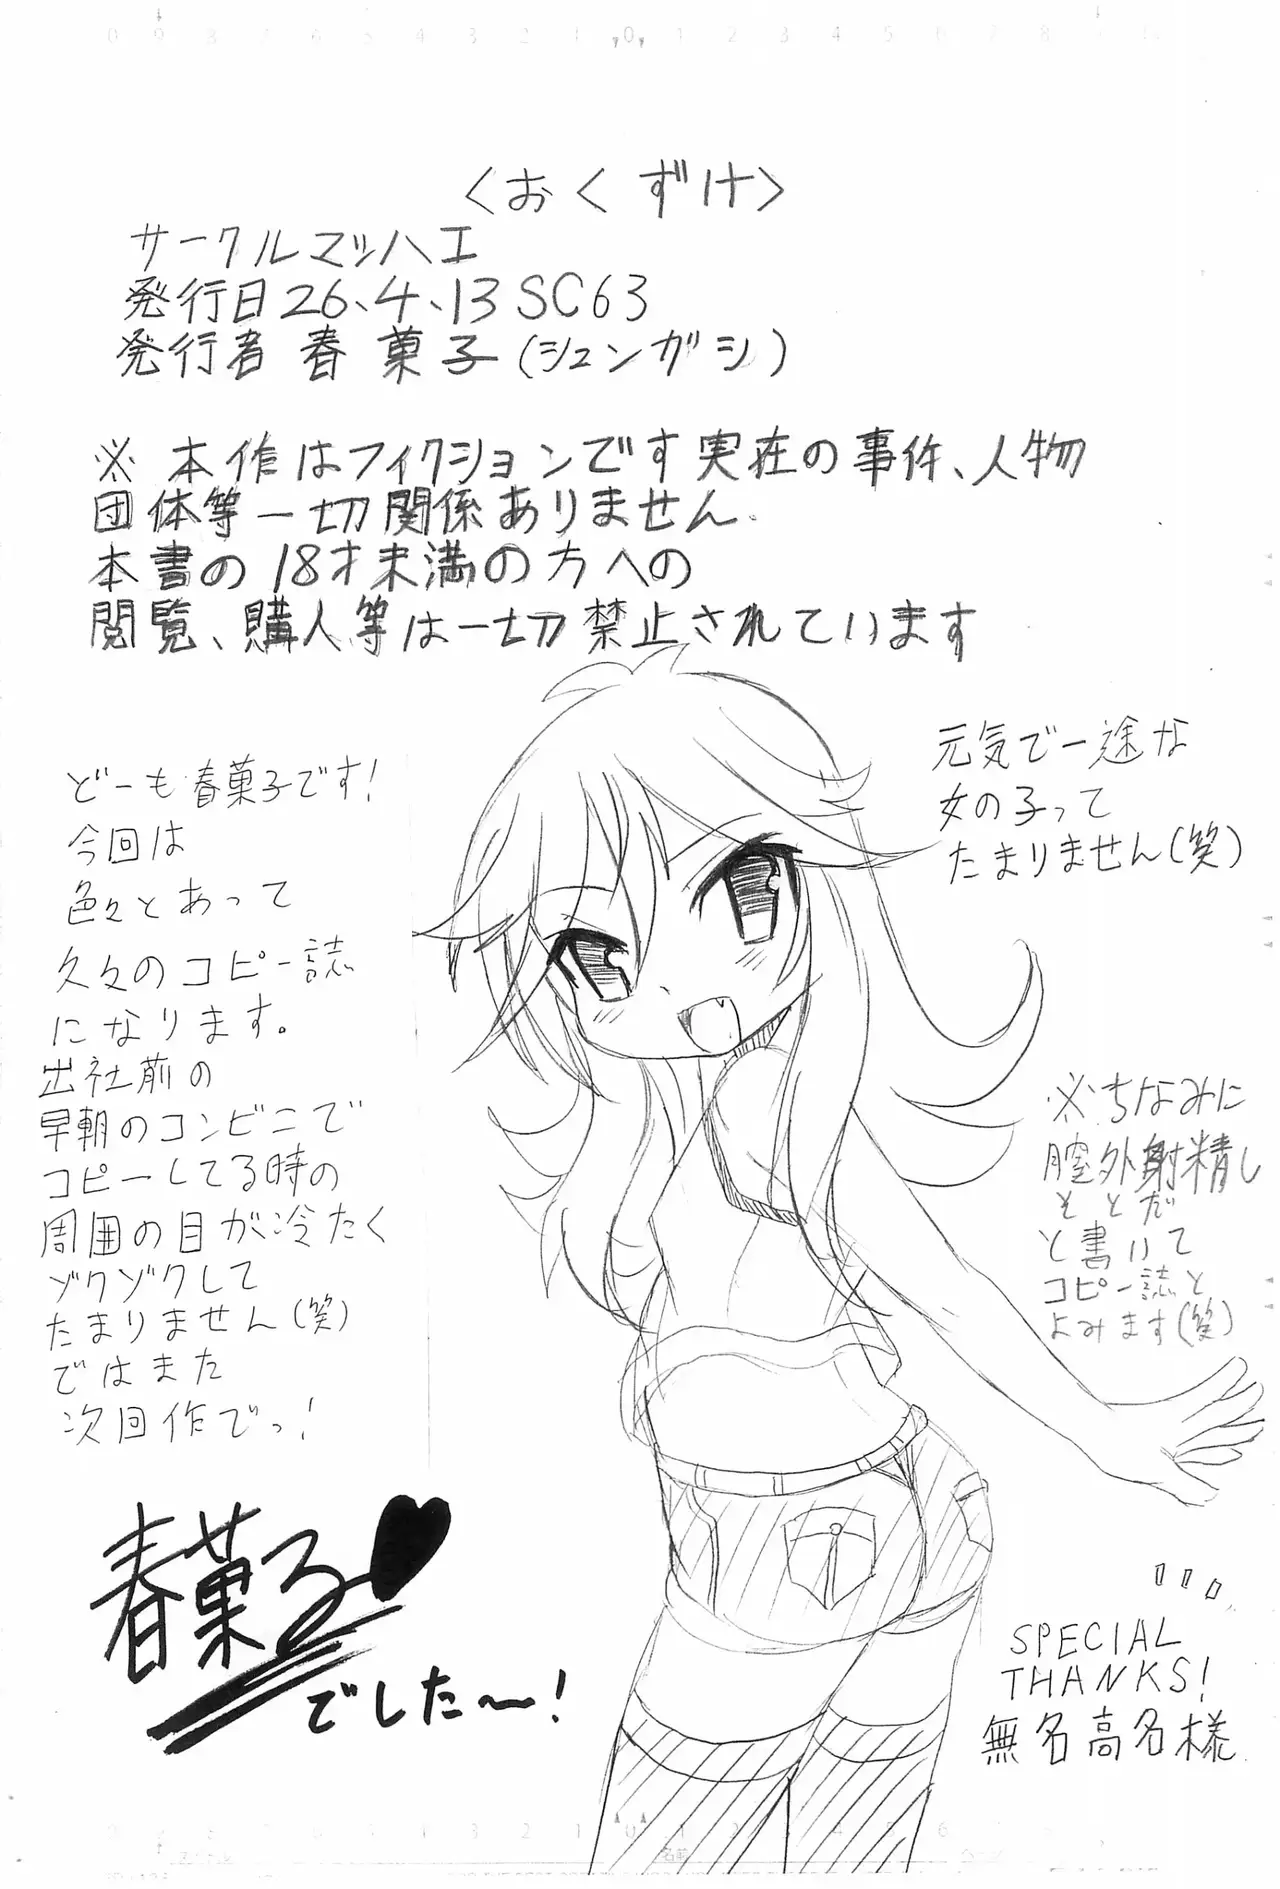 〈おくずけ〉
サークルマッハエ
発行日26、4、13 SC63
発行者 春菓子(シュンガシ)
※本作はフィクションです実在の事件、人物
団体等一切関係ありません
本書の18才未満の方への
閲覧、購入等は一切禁止されています
元気で一途な
女の子って
たまりません(笑)
どーも春菓子です!
今回は
色々とあって
久々のコピー誌
になります。
出社前の
早朝のコンビニで
コピーしてる時の
周囲の目が冷たく
ゾクゾクして
たまりません(笑)
ではまた
次回作でっ!
※ちなみに
膣外射精し
そとだ
と書いて
コピー誌と
よみます(笑)
春菓子♥
でした〜!
SPECIAL
THANKS!
無名高名様